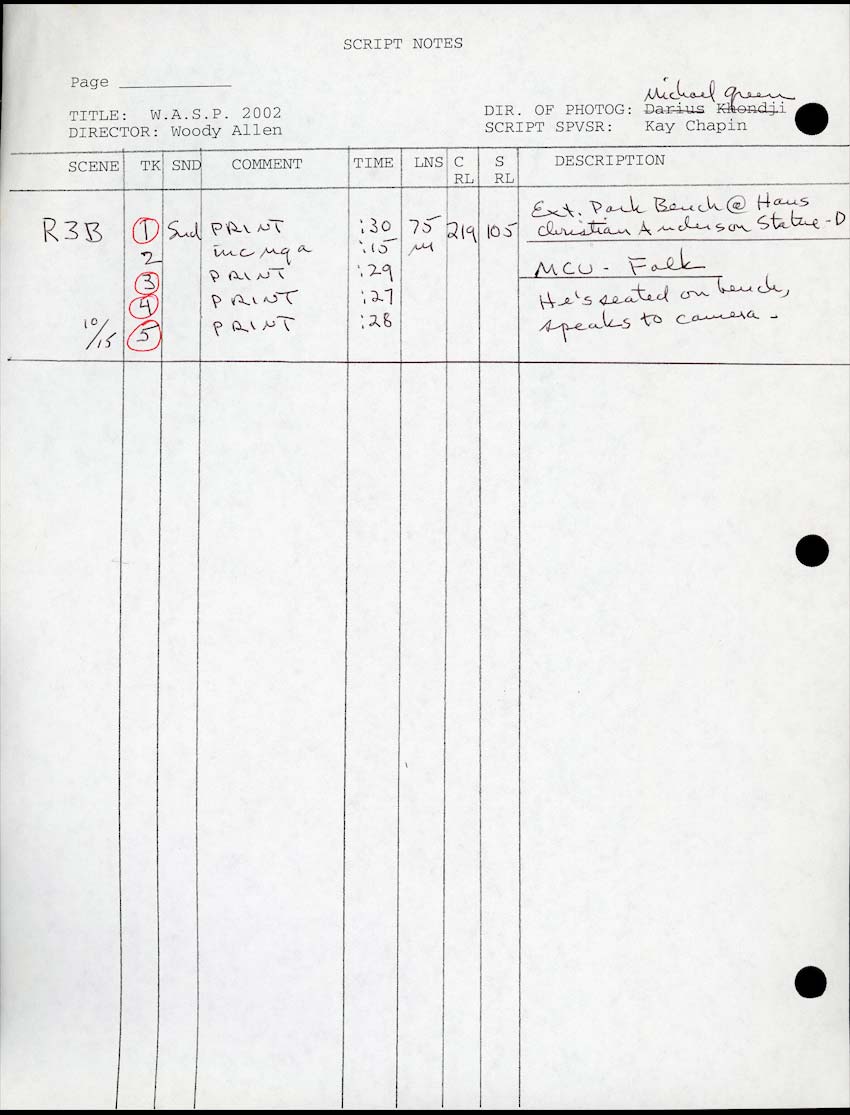 SCRIPT NOTES
Page
Michael Green
TITLE: W.A.S.P. 2002 DIR. OF PHOTOG: Darius Khondji
DIRECTOR: Woody Allen SCRIPT SPVSR: Kay Chapin
SCENE TK SND COMMENT TIME LNS C RL S RL DESCRIPTION
Ext. Park Bench @ Hans
R3B 1 Snd PRINT :30 75 219 105 Christian Anderson Statue - D
2 inc :15 m
MCU - Falk
3 PRINT :29
He's seated on bench,
4 PRINT :27
speaks to camera -
10/15 5 PRINT :28